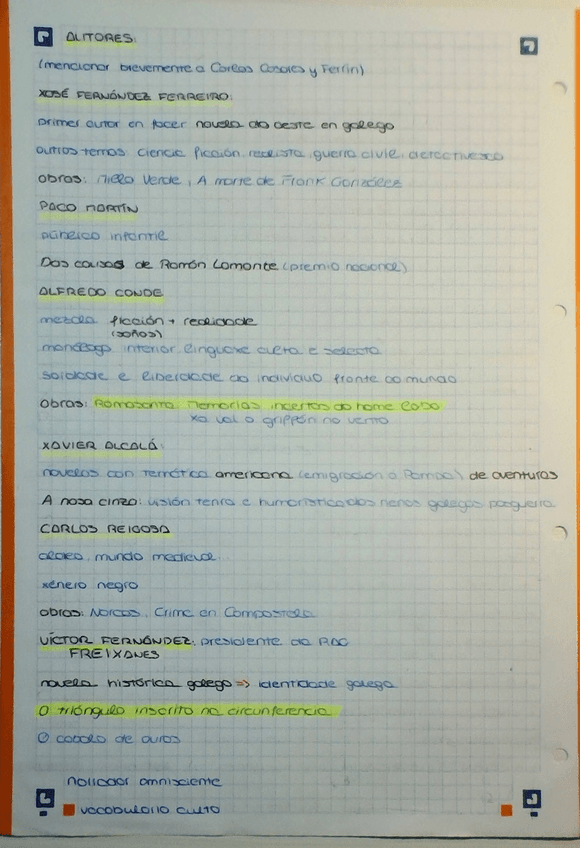 AUTORES:
(mencionar brevemente a Carlos Casares y Ferrín)
XOSÉ FERNÁNDEZ FERREIRO:
primer autor en facer novela do oeste en galego
outros temas: ciencia ficción, realista, guerra civil, detectivesco
obras: Ribeirana Verde, A morte de Frank González
PACO MARTÍN
público infantil
Das cousas de Ramón Lamonte (premio nacional)
ALFREDO CONDE
mezcla ficción + realidade
(soños)
monólogo interior, linguaxe culta e selecta
soidade e liberdade do individuo fronte ao mundo
obras: Romasanta. Memorias incertas do home lobo
xa vai o griffón no vento
XAVIER ALCALÁ:
novelas con temática americana (emigración á Pampa) de aventuras
A nosa cinza: visión tenra e humorística dos nenos galegos posguerra
CARLOS REIGOSA
aldea, mundo medieval
xénero negro
obras: Norcas, Crime en Compostela
VÍCTOR FERNÁNDEZ: presidente da RAG
FREIXANES
novela histórica galega => identidade galega
O triángulo inscrito na circunferencia
O cabalo de ouros
narrador omnisciente
vocabulario culto